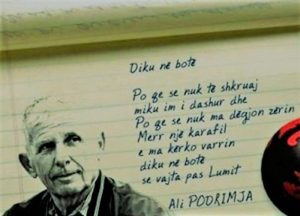 Diku në botë
Po qe se nuk të shkruaj
miku im i dashur dhe
Po qe se nuk ma dëgjon zërin
Merr një karafil
e ma kërko varrin
diku në botë
se vajta pas Lumit
Ali PODRIMJA